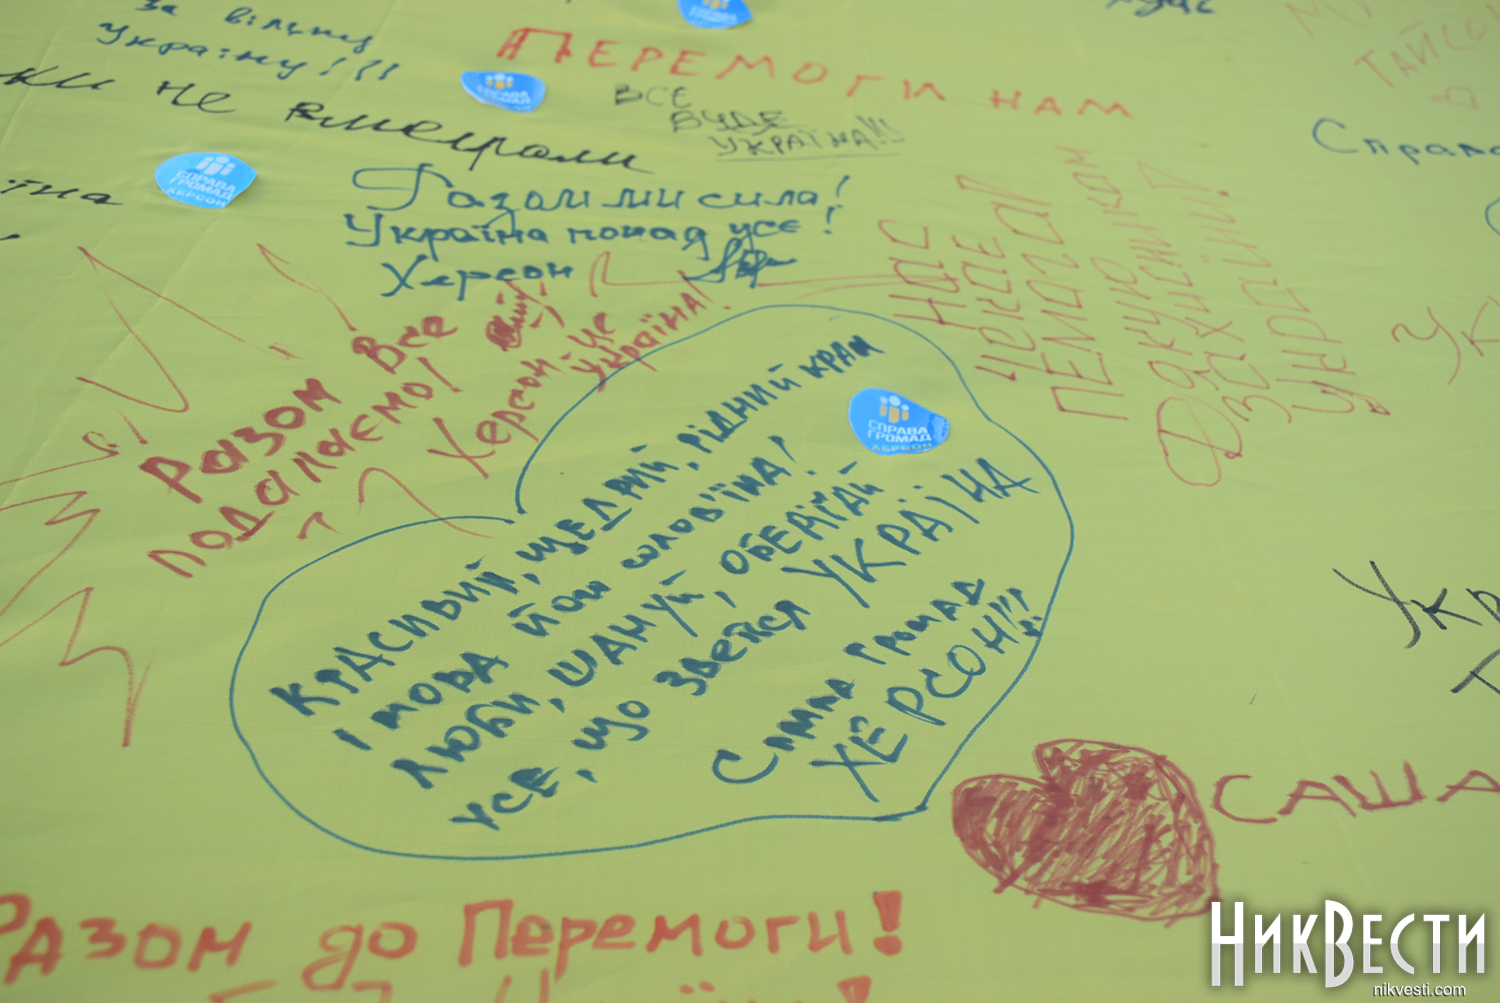 за вільну
Україну!!!
ки не вмерли
їна
ПЕРЕМОГИ НАМ
ВСЕ
БУДЕ
УКРАЇНА!!!
ТАЙСО
Справа
СПРАВА
ГРОМАД
ХЕРСОН
Разом ми сила!
Україна понад усе!
Херсон
НАС
ЧЕКАЄ
ДЯКУЮ
ЗАХИСНИКАМ
УКРАЇНИ!
РАЗОМ ВСЕ
ПОДОЛАЄМО!
Херсон це
Україна!
СПРАВА
ГРОМАД
ХЕРСОН
КРАСИВИЙ, ЩЕДРИЙ, РІДНИЙ КРАЙ
І МОВА ЙОГО СОЛОВ'ЇНА!
ЛЮБИ, ШАНУЙ, ОБЕРІГАЙ
УСЕ, ЩО ЗВЕТЬСЯ УКРАЇНА
Справа Громад
ХЕРСОН!!!
Ук
Укр
САША
РАЗОМ до Перемоги!
НикВести
nikvesti.com